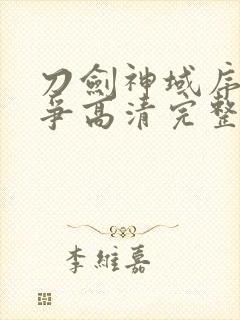 刀劍神域序
爭高清完整
李維嘉